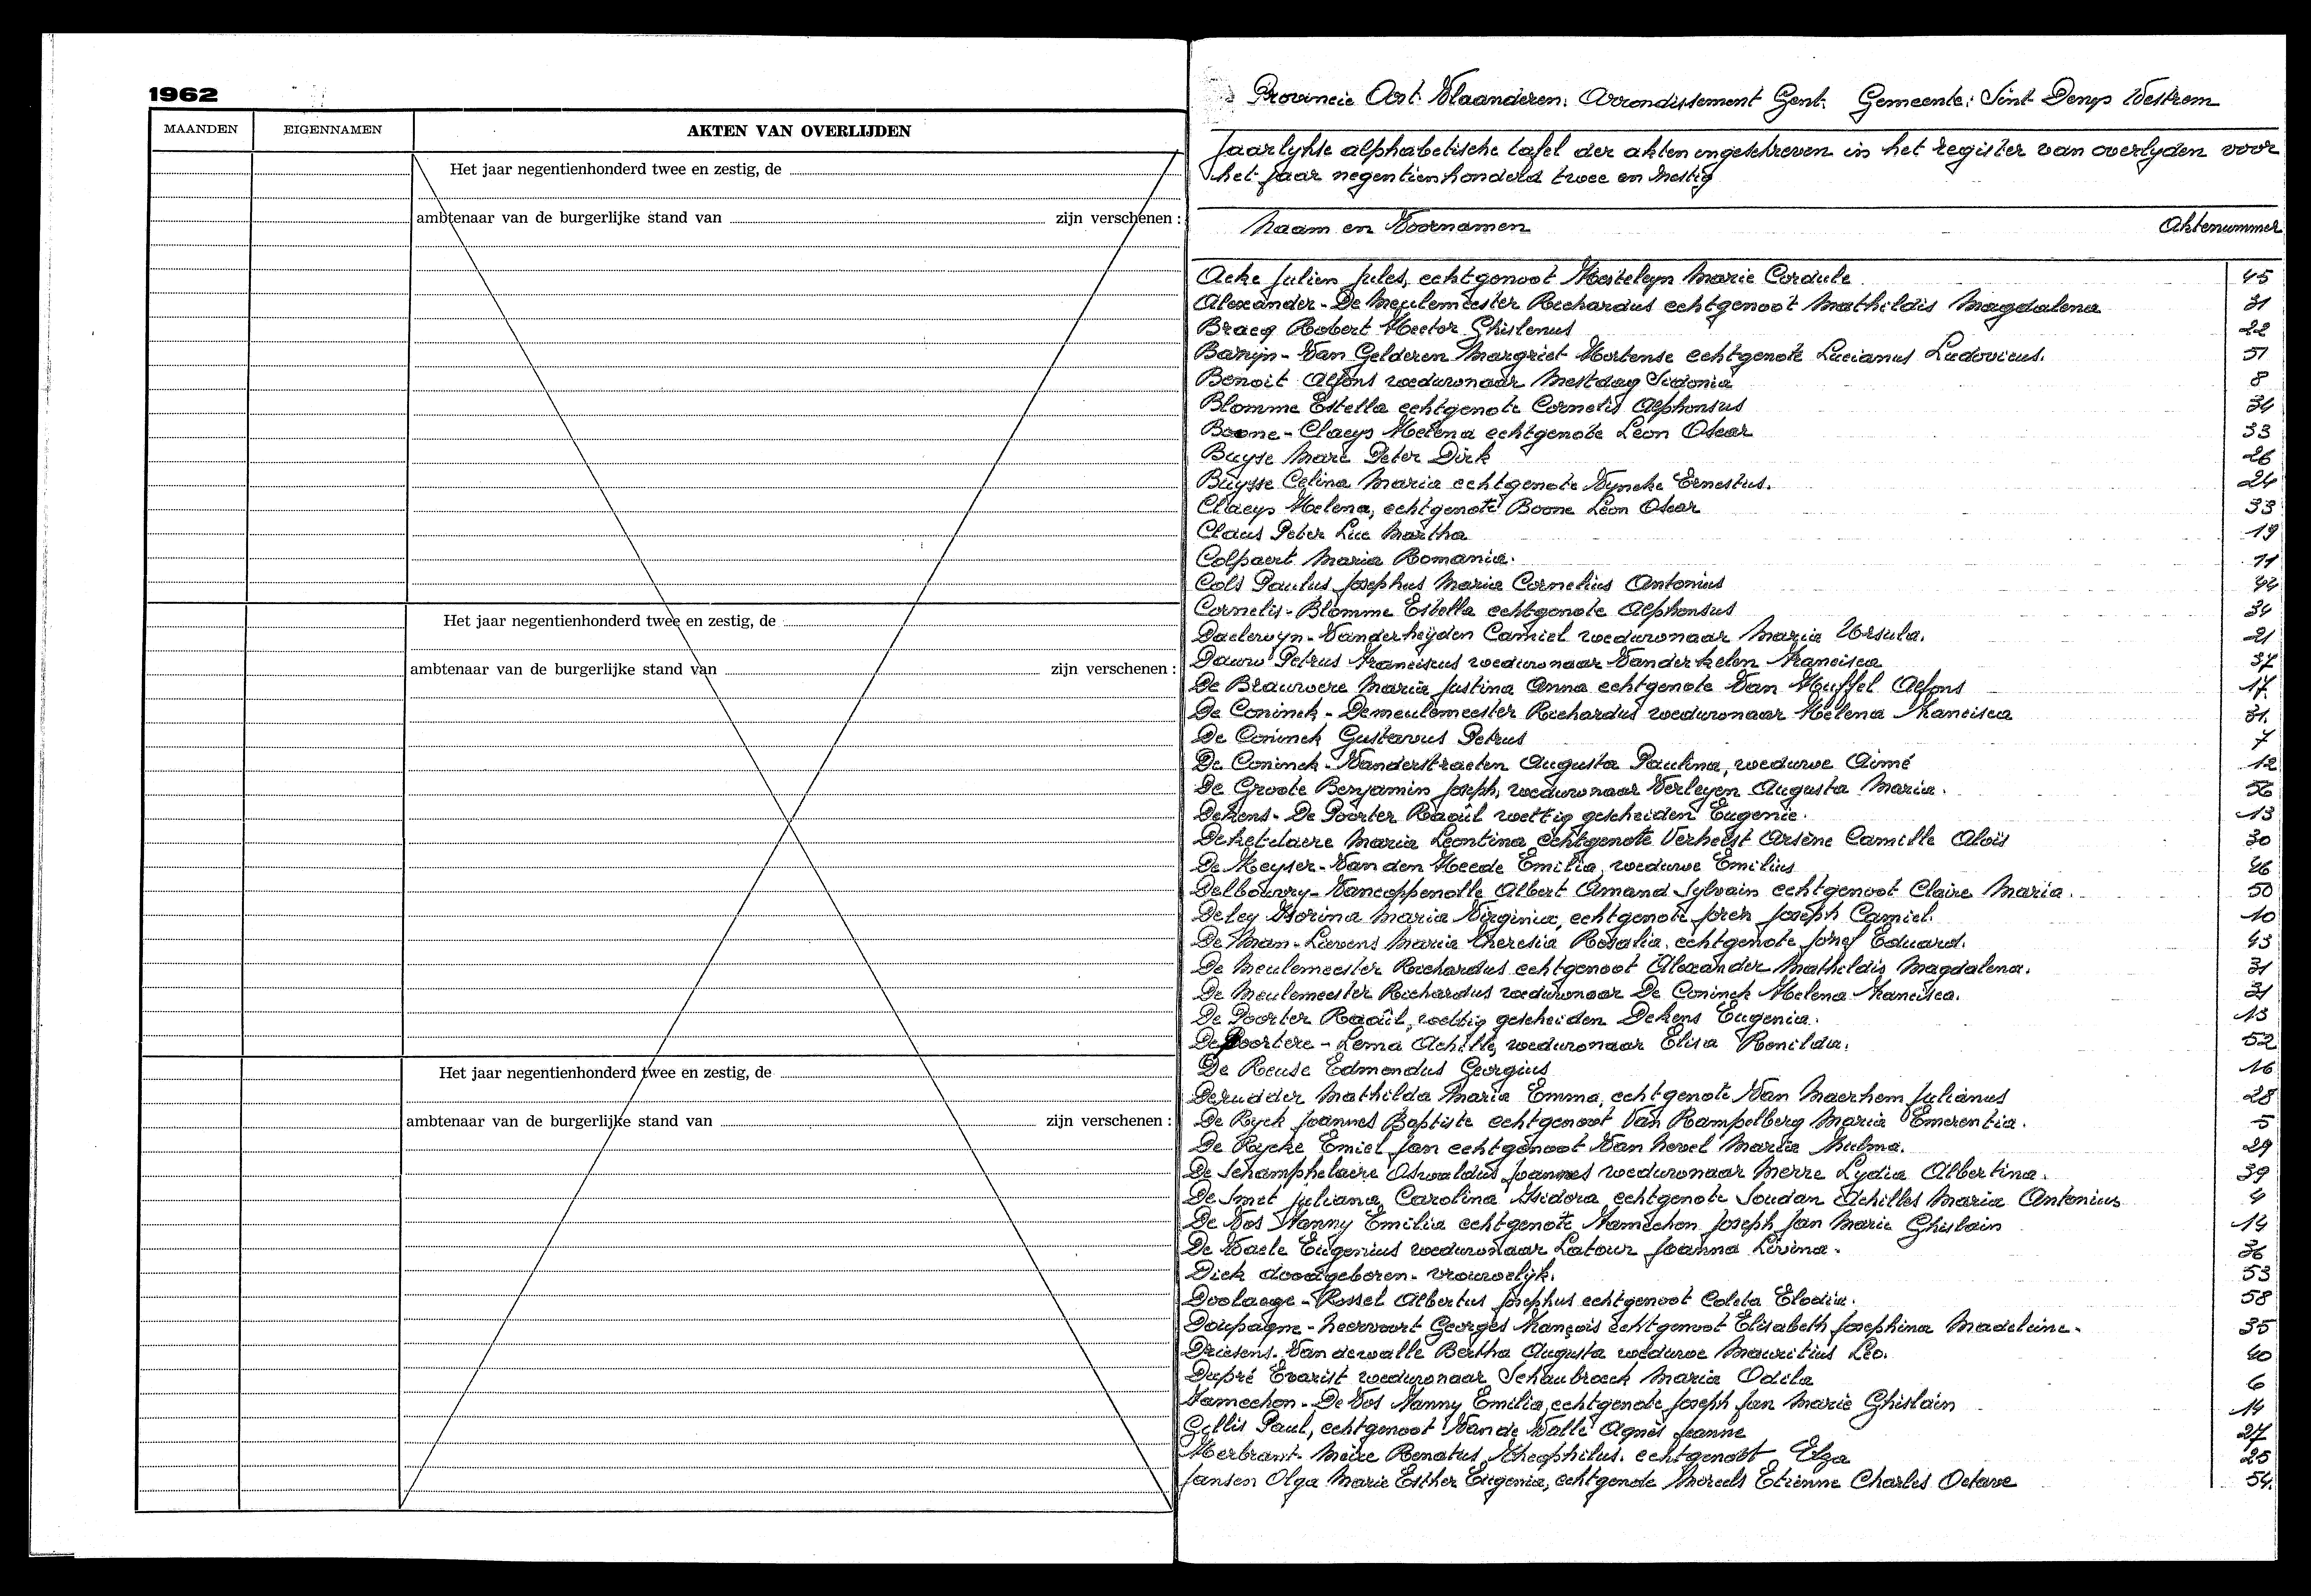 1962
MAANDEN EIGENNAMEN AKTEN VAN OVERLIJDEN
Het jaar negentienhonderd twee en zestig, de
ambtenaar van de burgerlijke stand van zijn verschenen :
Het jaar negentienhonderd twee en zestig, de
ambtenaar van de burgerlijke stand van zijn verschenen :
Het jaar negentienhonderd twee en zestig, de
ambtenaar van de burgerlijke stand van zijn verschenen :
Provincie Oost-Vlaanderen. Arrondissement Gent. Gemeente: Sint Denys Westrem
Jaarlykse alphabetische tafel der akten ingeschreven in het register van overlyden voor
het jaar negentienhonderd twee en zestig
Naam en Voornamen Aktenummer
Acke Julien Jules, echtgenoot Hosteleyn Marie Cordule 45
Alexander - De Meulemeester Richardus echtgenoot Mathildis Magdalena 31
Bracq Robert Hector Ghislenus 22
Baryn - Van Gelderen Margriet Hortense echtgenote Lucianus Ludovicus. 51
Benoit Alfons weduwnaar Mestdag Sidonia 8
Blomme Estella echtgenote Cornelis Alphonsus 34
Boone - Claeys Helena echtgenote Leon Oscar 33
Buyse Marc Peter Dirk 26
Buysse Celina Maria echtgenote Vyncke Ernestus. 24
Claeys Helena, echtgenote Boone Leon Oscar 33
Claus Peter Luc Martha 19
Colpaert Maria Romania. 11
Cols Paulus Josephus Maria Cornelius Antonius 42
Cornelis - Blomme Estella echtgenote Alphonsus 34
Daelewyn - Vanderheyden Camiel weduwnaar Maria Ursula. 21
Dauw Petrus Franciscus weduwnaar Vanderkelen Francisca 37
De Brauwere Maria Justina Anna echtgenote Van Huffel Alfons 17.
De Coninck - Demeulemeester Richardus weduwnaar Helena Francisca 31.
De Coninck Gustavus Petrus 7
De Coninck - Vanderstraeten Augusta Paulina, weduwe Aimé 12
De Groote Benjamin Joseph, weduwnaar Verleyen Augusta Maria. 56
Dekens - De Poorter Raoûl wettig gescheiden Eugenie. 13
Deketelaere Maria Leontina echtgenote Verhelst Arsène Camille Aloïs 30
De Keyser - Van den Heede Emilia, weduwe Emilius 46
Delbouvry - Vancoppenolle Albert Amand Sylvain echtgenoot Claire Maria. 50
Deley Florina Maria Virginia, echtgenote Joseph Camiel. 10
De Man - Lievens Maria Theresia Rosalia. echtgenote Jozef Eduard. 43
De Meulemeester Richardus echtgenoot Alexander Mathildis Magdalena. 31
De Meulemeester Richardus weduwnaar De Coninck Helena Francisca. 31
De Poorter Raoûl, wettig gescheiden Dekens Eugenia. 13
De Poortere - Lema Achille, weduwnaar Elisa Renilda. 52
De Reuse Edmondus Georgius 16
Derudder Mathilda Maria Emma, echtgenote Van Maerhem Julianus 28
De Ryck Joannes Baptiste echtgenoot Van Rampelberg Maria Emerentia. 5
De Rycke Emiel Jan echtgenoot Van Hevel Maria Zulma. 29
De Schamphelaere Oswaldus Joannes weduwnaar Merre Lydia Albertina. 39
De Smet Juliana Carolina Isidora echtgenote Soudan Achilles Maria Antonius 4
De Vos Nanny Emilia echtgenote Hamechon Joseph Jan Marie Ghislain 14
De Waele Eugenius weduwnaar Latour Joanna Livina. 36
Dick doodgeboren - vrouwelijk. 53
Doolaege - Rossel Albertus Josephus echtgenoot Coleta Elodia. 58
Doupagne - Heervoort Georges François echtgenoot Elisabeth Josephina Madeleine. 35
Driesens - Van dewalle Bertha Augusta weduwe Mauritius Leo. 40
Dupré Evarist weduwnaar Schaubroeck Maria Odila 6
Hamechon - De Vos Nanny Emilia, echtgenote Joseph Jan Marie Ghislain 14
Gyllis Paul, echtgenoot Van de Walle Agnès Jeanne 27
Herbrant - Meire Renatus Theophilus. echtgenoot Elza 25
Jansen Olga Marie Esther Eugenia, echtgenote Moreels Etienne Charles Octave 54.